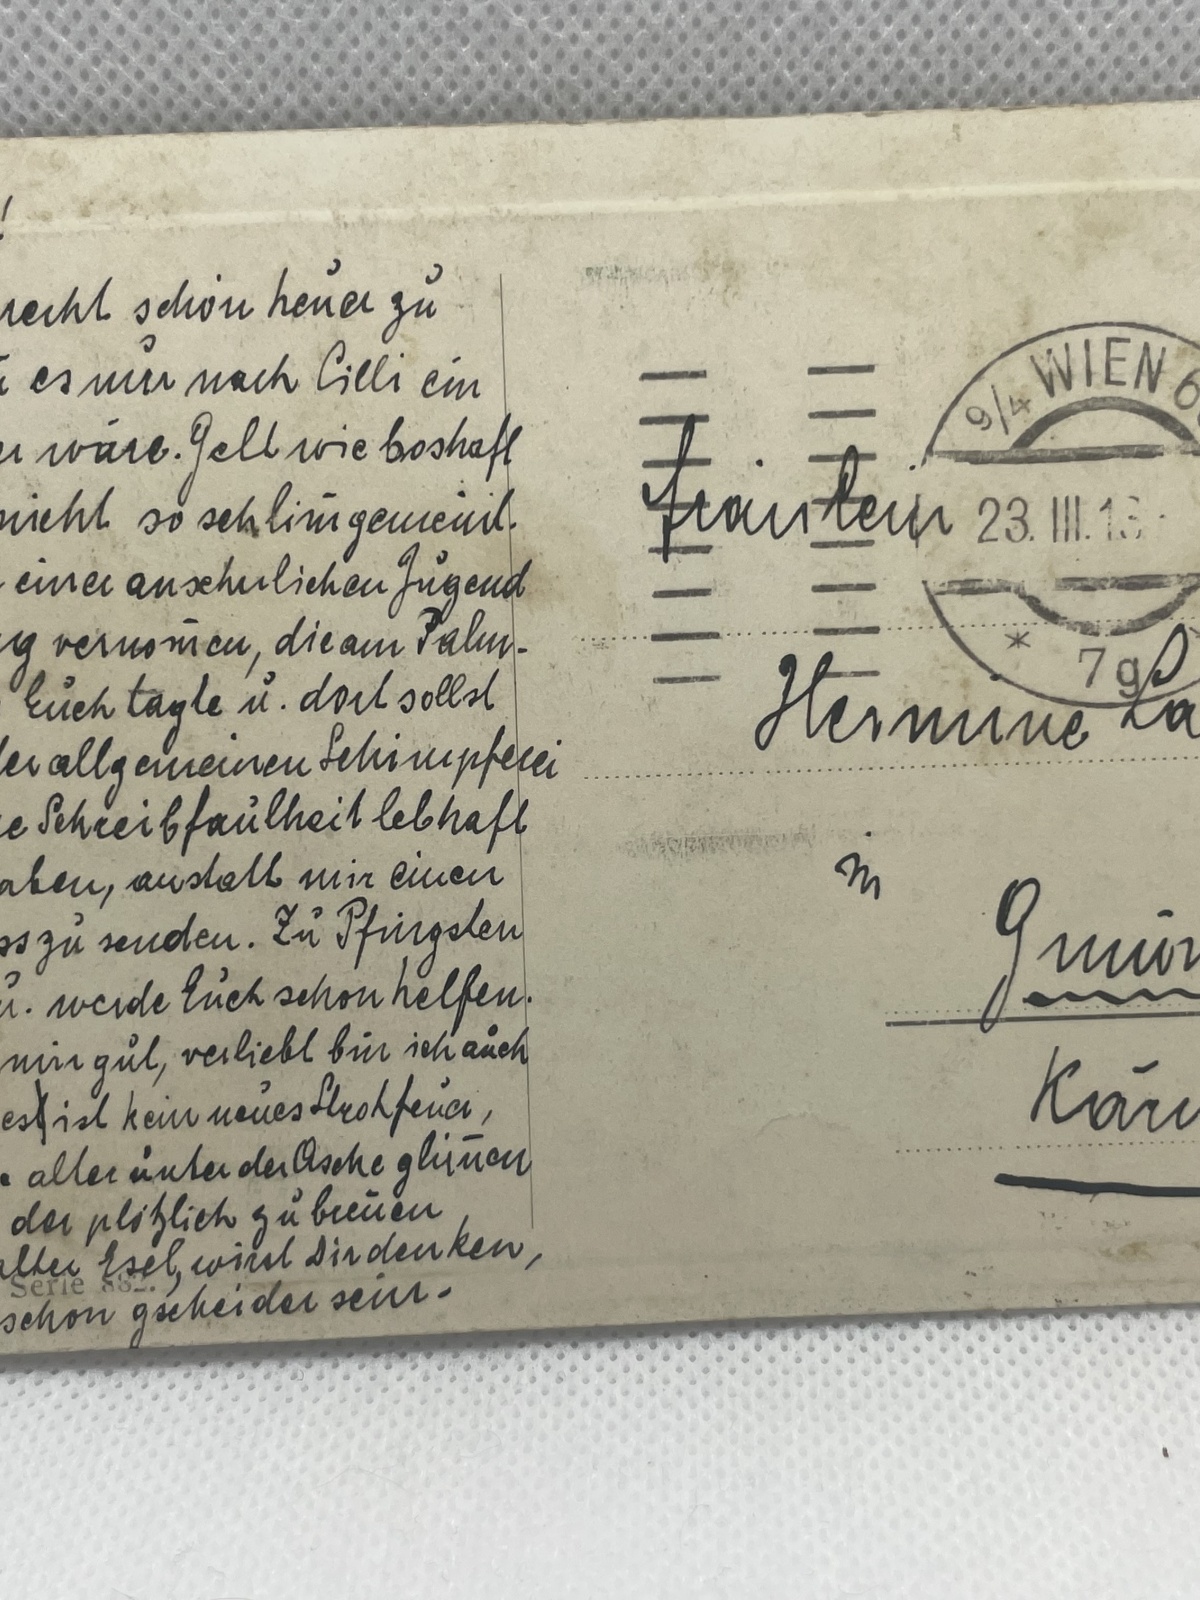 !
recht schön heuer zu
es nur nach Cilli ein
wäre. Gell wie boshaft
nicht so schlim̄ gemeint.
einer ansehnlichen Jugend
vernom̄en, die am Palm-
Euch tagte u. dort sollst
der allgemeinen Schimpferei
Schreibfaulheit lebhaft
aben, anstatt mir einen
ss zu senden. Zu Pfingsten
u. werde Euch schon helfen.
mir gut, verliebt bin ich auch
ist kein neues Strohfeuer,
alter unter der Asche glim̄en
der plötzlich zu bren̄en
alter Esel, wirst Dir denken,
schon gscheider sein.-
Serie 882.
9/4 WIEN 6
23. III. 13
* 7g
Fräulein
Hermine La
in
Gmün
Kärn